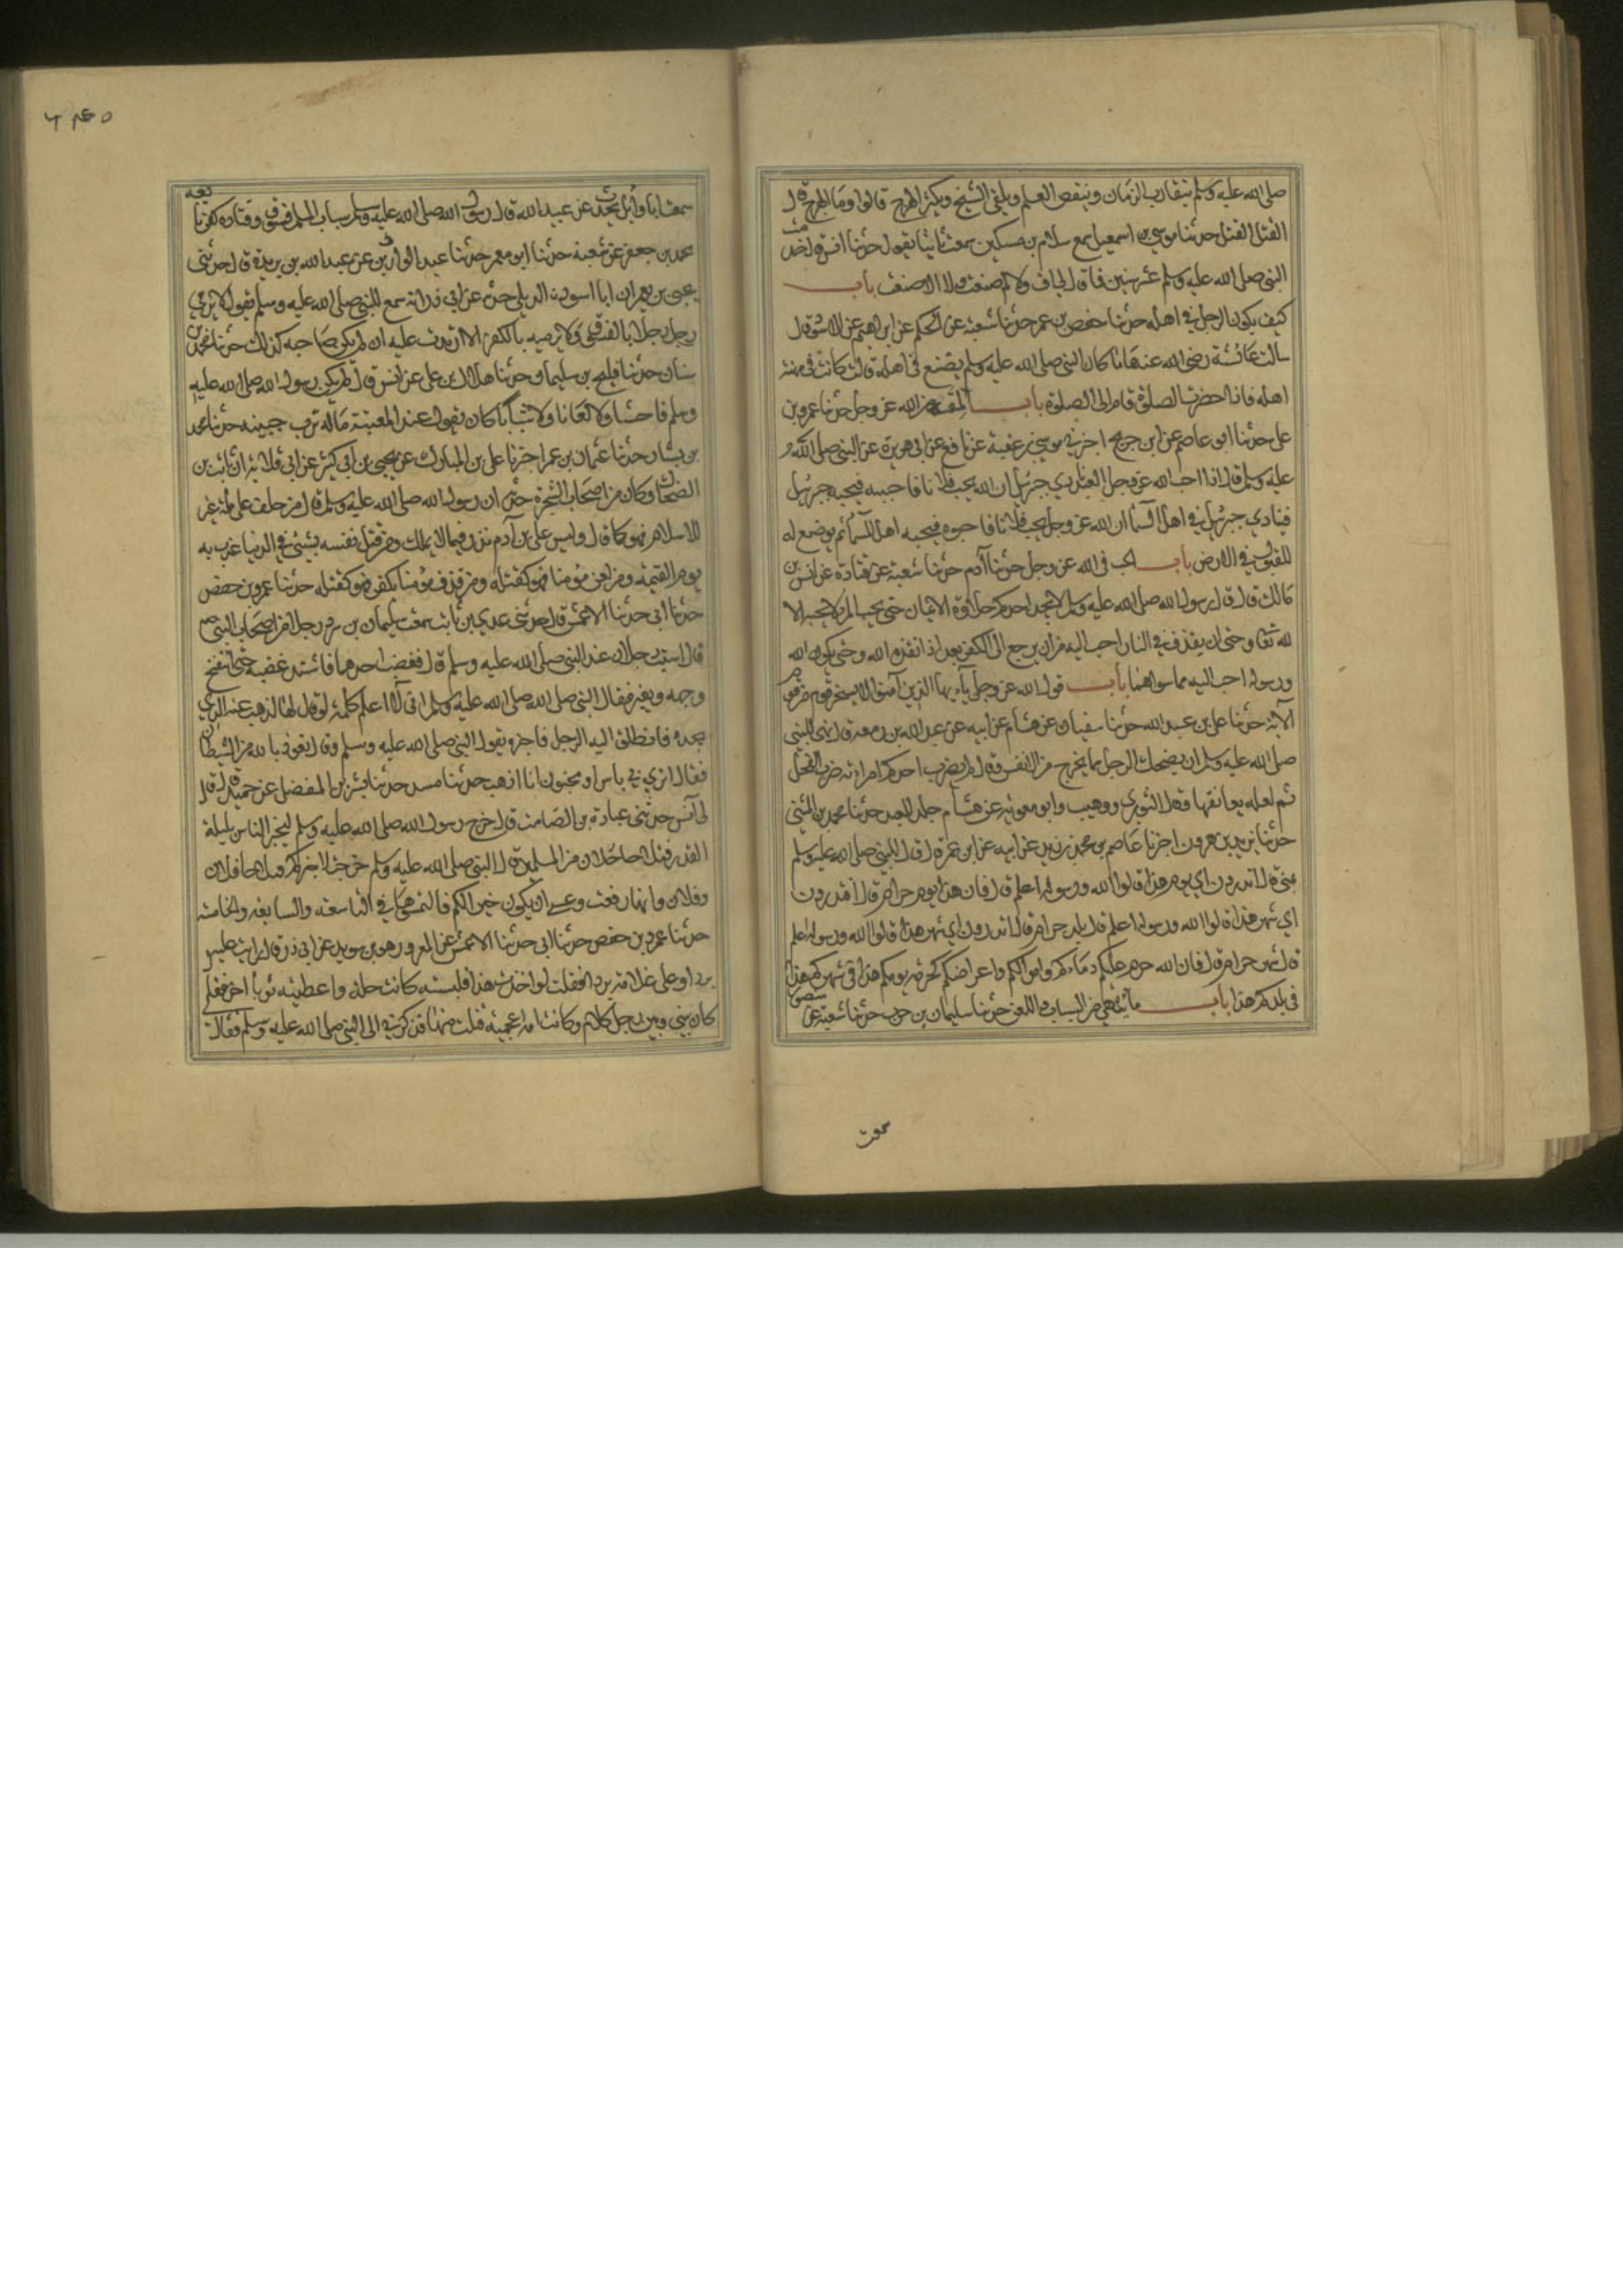 صلى الله عليه وسلم يتقارب الزمان وينقص العلم ويلقى الشح ويكثر الهرج قالوا وما الهرج قال
القتل القتل حدثنا موسى بن اسمعيل سمع سلام بن مسكين سمعت ثابتا يقول حدثنا انس قال خدمت
النبي صلى الله عليه وسلم عشر سنين فما قال لي اف ولا لم صنعت ولا الا صنعت باب
كيف يكون الرجل في اهله حدثنا حفص بن عمر حدثنا شعبة عن الحكم عن ابراهيم عن الاسود قال
سالت عائشة رضي الله عنها ما كان النبي صلى الله عليه وسلم يصنع في اهله قالت كان في مهنة
اهله فاذا حضرت الصلوة قام الى الصلوة باب المقة من الله عز وجل حدثنا عمرو بن
علي حدثنا ابو عاصم عن ابن جريج اخبرني موسى بن عقبة عن نافع عن ابي هريرة عن النبي صلى الله
عليه وسلم قال اذا احب الله عز وجل العبد نادى جبرئيل ان الله يحب فلانا فاحببه فيحبه جبرئيل
فينادي جبرئيل في اهل السماء ان الله عز وجل يحب فلانا فاحبوه فيحبه اهل السماء ثم يوضع له
القبول في الارض باب الحب في الله عز وجل حدثنا آدم حدثنا شعبة عن قتادة عن انس بن
مالك قال قال رسول الله صلى الله عليه وسلم لا يجد احدكم حلاوة الايمان حتى يحب المرء لا يحبه الا
لله تعا وحتى ان يقذف في النار احب اليه من ان يرجع الى الكفر بعد اذ انقذه الله وحتى يكون الله
ورسوله احب اليه مما سواهما باب قول الله عز وجل يآءيها الذين آمنوا لا يسخر قوم من قوم
الآية حدثنا علي بن عبد الله حدثنا سفيان عن هشام عن ابيه عن عبد الله بن زمعة قال نهى النبي
صلى الله عليه وسلم ان يضحك الرجل مما يخرج من الانفس وقال لم يضرب احدكم امراته ضرب الفحل
ثم لعله يعانقها وقال الثوري ووهيب وابو معوية عن هشام جلد العبد حدثنا محمد بن المثنى
حدثنا يزيد بن هرون اخبرنا عاصم بن محمد بن زيد عن ابيه عن ابن عمر قال قال النبي صلى الله عليه وسلم
بمنى قال اتدرون اي يوم هذا قالوا الله ورسوله اعلم قال فان هذا يوم حرام قال افتدرون
اي شهر هذا قالوا الله ورسوله اعلم قال بلد حرام قال اتدرون اي شهر هذا قالوا الله ورسوله اعلم
قال شهر حرام قال فان الله حرم عليكم دماءكم واموالكم واعراضكم كحرمة يومكم هذا في شهركم هذا
في بلدكم هذا باب ما ينهى من السباب واللعن حدثنا سليمان بن حرب حدثنا شعبة عن
سمعت
سمعت ابا وائل يحدث عن عبد الله قال رسول الله صلى الله عليه وسلم سباب المسلم فسوق وقتاله كفر تابعه
محمد بن جعفر عن شعبة حدثنا ابو معمر حدثنا عبد الوارث عن عبد الله بن بريدة قال حدثني
يحيى بن يعمر ان ابا اسود الديلي حدثه عن ابي ذر انه سمع النبي صلى الله عليه وسلم يقول لا يرمي
رجل رجلا بالفسوق ولا يرميه بالكفر الا ارتدت عليه ان لم يكن صاحبه كذلك حدثنا محمد بن
سنان حدثنا فليح بن سليمان حدثنا هلال بن علي عن انس قال لم يكن رسول الله صلى الله عليه
وسلم فاحشا ولا لعانا ولا سبابا كان يقول عند المعتبة ماله ترب جبينه حدثنا محمد
بن بشار حدثنا عثمان بن عمر اخبرنا علي بن المبارك عن يحيى بن ابي كثير عن ابي قلابة ان ثابت بن
الضحاك وكان من اصحاب الشجرة حدثه ان رسول الله صلى الله عليه وسلم قال من حلف على ملة غير
الاسلام فهو كما قال وليس على بن آدم نذر فيما لا يملك ومن قتل نفسه بشئ في الدنيا عذب به
يوم القيمة ومن لعن مؤمنا فهو كقتله ومن قذف مؤمنا بكفر فهو كقتله حدثنا عمرو بن حفص
حدثنا ابي حدثنا الاعمش قال حدثني عدي بن ثابت سمعت سليمان بن صرد رجلا من اصحاب النبي صم
قال استب رجلان عند النبي صلى الله عليه وسلم قال فغضب احدهما فاشتد غضبه حتى انتفخ
وجهه وتغير فقال النبي صلى الله عليه وسلم اني لاعلم كلمة لو قالها لذهب عنه الذي
يجده فانطلق اليه الرجل فاخبره بقول النبي صلى الله عليه وسلم وقال تعوذ بالله من الشيطان
فقال اترى بي باس او مجنون انا اذهب حدثنا مسدد حدثنا بشر بن المفضل عن حميد قال قال
لي آنس حدثني عبادة بن الصامت قال خرج رسول الله صلى الله عليه وسلم ليخبر الناس بليلة
القدر فتلاحا رجلان من المسلمين قال النبي صلى الله عليه وسلم خرجت لاخبركم فتلاحا فلان
وفلان وانها رفعت وعسى ان يكون خيرا لكم فالتمسوها في التاسعة والسابعة والخامسة
حدثنا عمرو بن حفص حدثنا ابي حدثنا الاعمش عن المعرور هو بن سويد عن ابي ذر قال رايت عليه
بردا وعلى غلامه بردا فقلت لو اخذت هذا فلبسته كانت حلة واعطيته ثوبا آخر فقال
كان بيني وبين رجل كلام وكانت امه اعجمية فنلت منها فذكرني الى النبي صلى الله عليه وسلم فقال